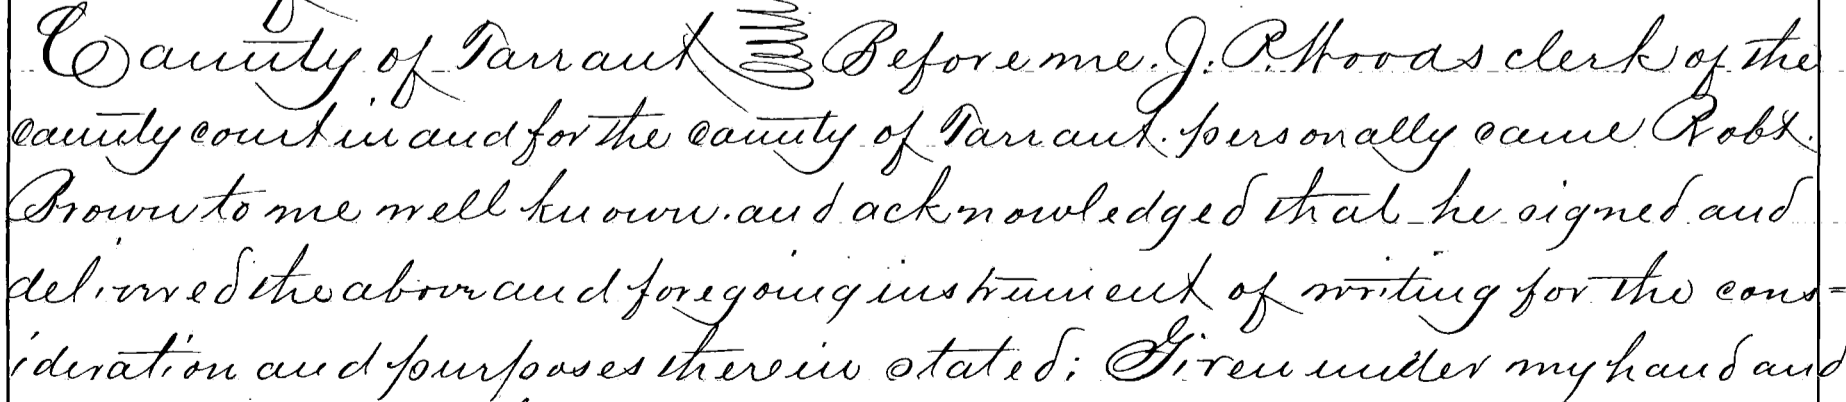 County of Tarrant Before me. J. P. Woods clerk of the
county court in and for the county of Tarrant. personally came Robt.
Brown to me well known. and acknowledged that he signed and
delivered the above and foregoing instrument of writing for the cons=
ideration and purposes therein stated; Given under my hand and